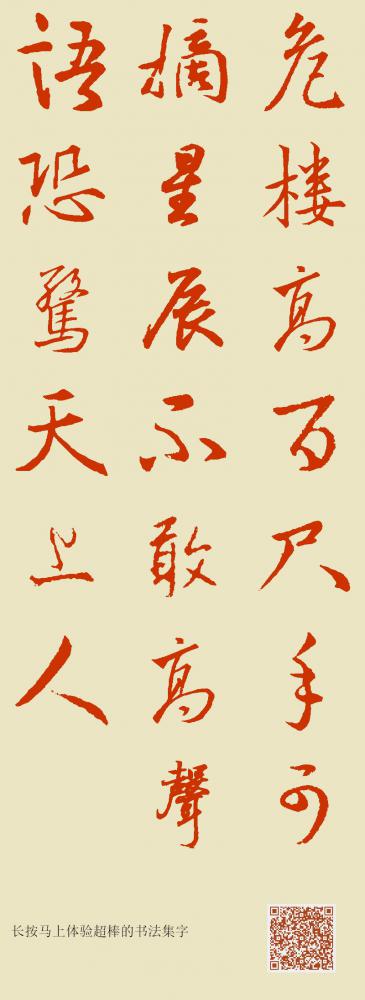 危楼高百尺手可
摘星辰不敢高聲
語恐驚天上人
长按马上体验超棒的书法集字